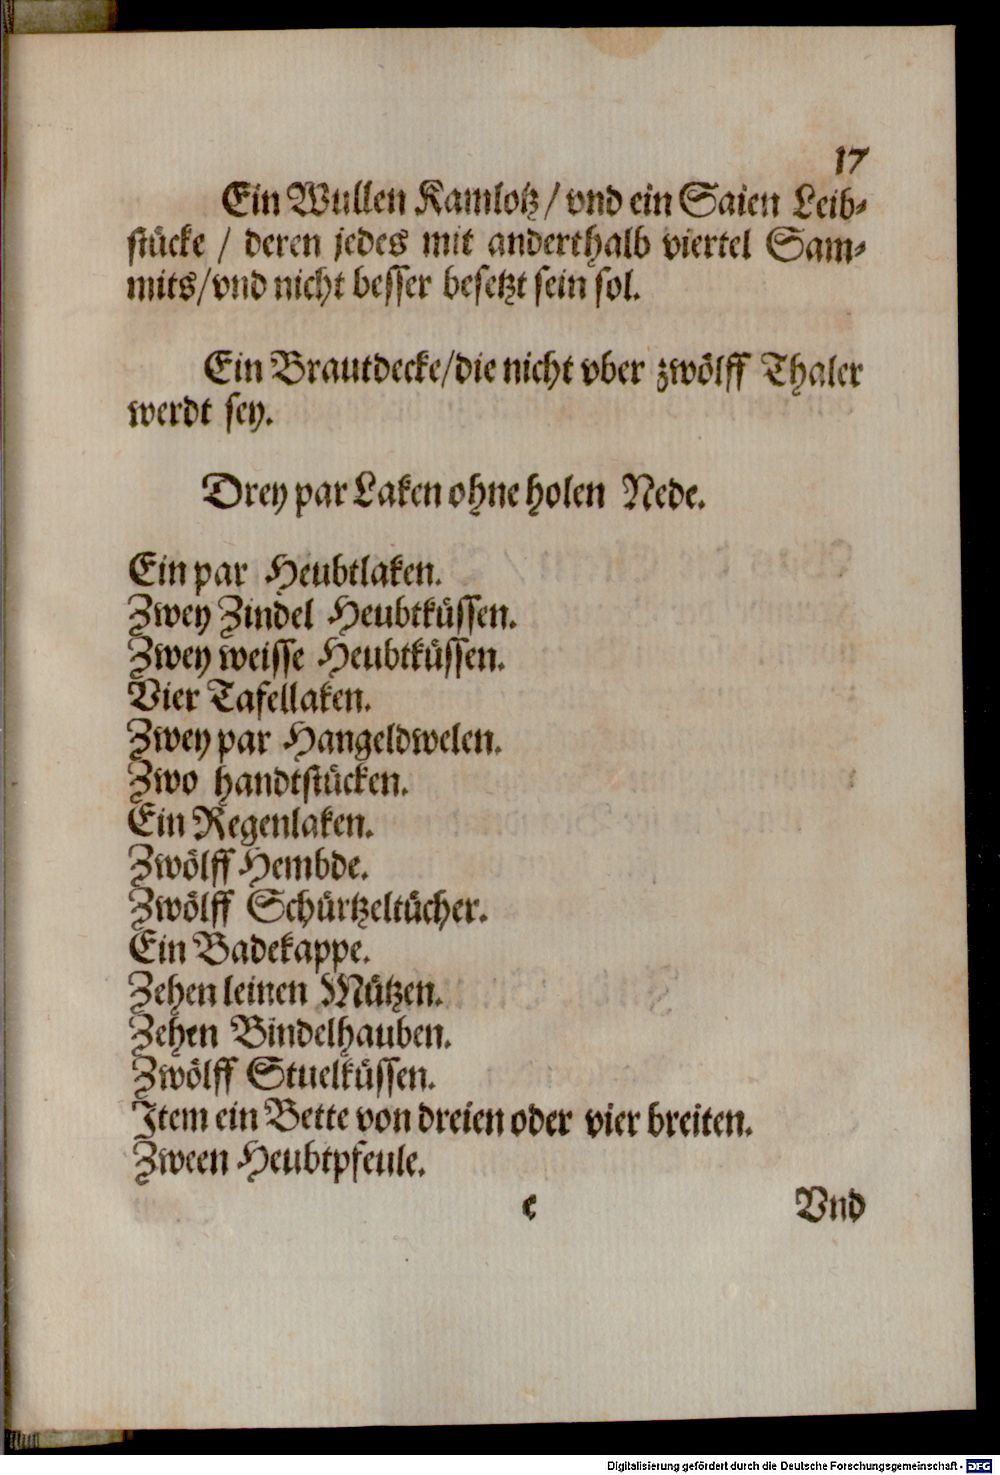 17
Ein Wullen Kamlotz / vnd ein Saien Leib⸗
stücke / deren jedes mit anderthalb viertel Sam⸗
mits / vnd nicht besser besetzt sein sol.
Ein Brautdecke / die nicht vber zwölff Thaler
werdt sey.
Drey par Laken ohne holen Nede.
Ein par Heubtlaken.
Zwey Zindel Heubtküssen.
Zwey weisse Heubtküssen.
Vier Tafellaken.
Zwey par Hangeldwelen.
Zwo handtstücken.
Ein Regenlaken.
Zwölff Hembde.
Zwölff Schürtzeltücher.
Ein Badekappe.
Zehen leinen Mützen.
Zehen Bindelhauben.
Zwölff Stuelküssen.
Item ein Bette von dreien oder vier breiten.
Zween Heubtpfeule.
c Vnd
Digitalisierung gefördert durch die Deutsche Forschungsgemeinschaft - DFG